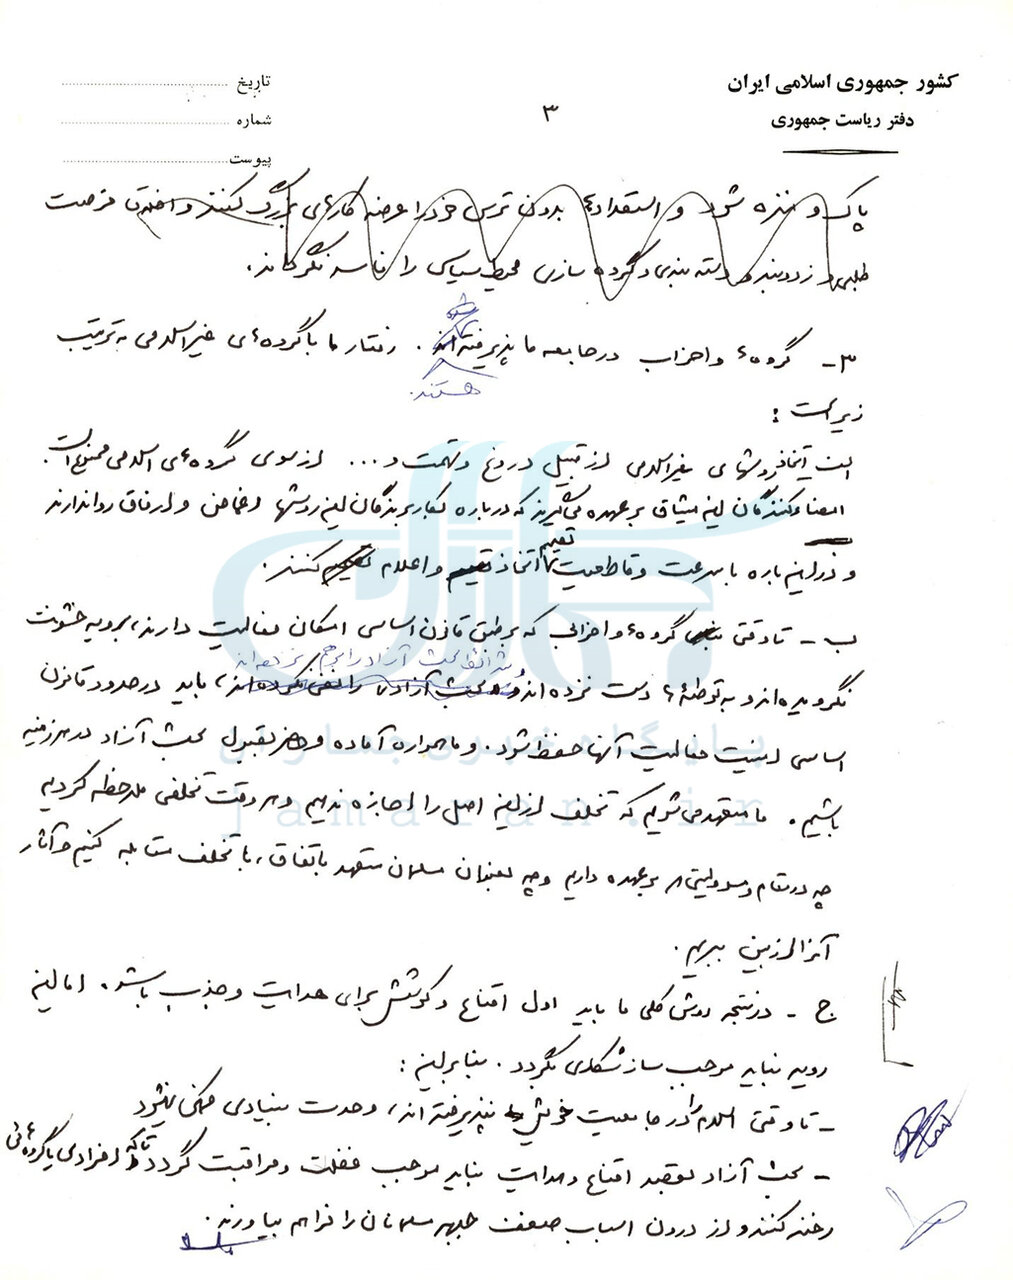 کشور جمهوری اسلامی ایران
دفتر ریاست جمهوری
تاریخ
شماره
پیوست
۳
پاک و منزه شود و استعدادها بدون ترس خود را عرضه کارهای بزرگ کنند و اخلاق فرصت
طلبی و زدوبند و دسته بندی و گروه سازی محیط سیاسی را فاسد نگرداند.
۳- گروهها و احزاب در جامعه ما پذیرفته شده هستند. رفتار ما با گروههای غیراسلامی به ترتیب
زیر است:
الف- اتخاذ روشهای غیراسلامی از قبیل دروغ و تهمت و... از سوی گروههای اسلامی ممنوع است.
امضاءکنندگان این میثاق بر عهده می‌گیرند که درباره بکاربرندگان این روشها اغماض و ارفاق روا ندارند
و در این باره با سرعت و قاطعیت اتخاذ تصمیم و اعلام کنند.
ب- تا وقتی گروهها و احزابی که بر طبق قانون اساسی امکان فعالیت دارند، برویه خشونت
نگرویده‌اند و به توطئه‌ها دست نزده‌اند و شرائط بحث آزاد را بر هم نزده‌اند، باید در حدود قانون
اساسی امنیت فعالیت آنها حفظ شود. و ما همواره آماده و حاضر بقبول بحث آزاد در هر زمینه
باشیم. ما متعهد می‌شویم که تخلف از این اصل را اجازه ندهیم و هر وقت تخلفی ملاحظه کردیم
چه در مقام و مسوولیتی که بر عهده داریم و چه بعنوان مسلمان متعهد باتفاق، با تخلف مقابله کنیم و آثار
آنرا از بین ببریم.
ج- در نتیجه روش کلی ما باید اول اقناع و کوشش برای هدایت و جذب باشد. اما این
رویه نباید موجب سازشکاری گردد. بنابراین:
- تا وقتی اسلام را در جامعیت خویش نپذیرفته‌اند، وحدت بنیادی ممکن نمیشود
- بحث آزاد بقصد اقناع و هدایت نباید موجب غفلت و مراقبت گردد تا که افرادی یا گروههائی
رخنه کنند و از درون اسباب ضعف جبهه مسلمانان را فراهم بیاورند.
جماران
پایگاه خبری جماران
jamaran.ir